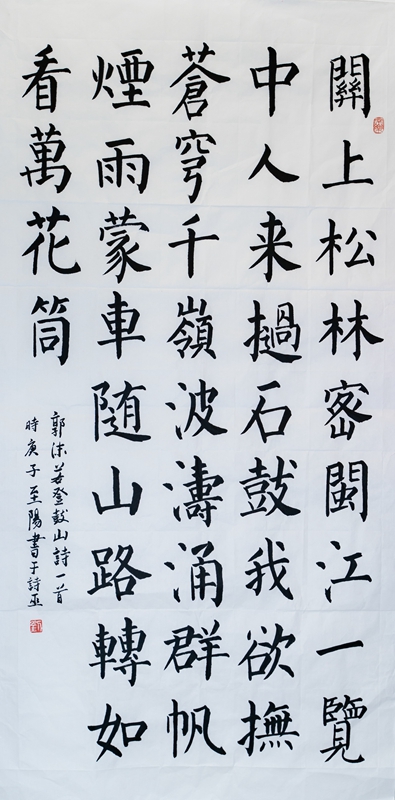 關上松林密閩江一覽
中人来撾石鼓我欲撫
蒼穹千嶺波濤涌群帆
煙雨蒙車随山路轉如
看萬花筒
郭沫若登鼓山詩一首
時庚子至陽書于詩巫